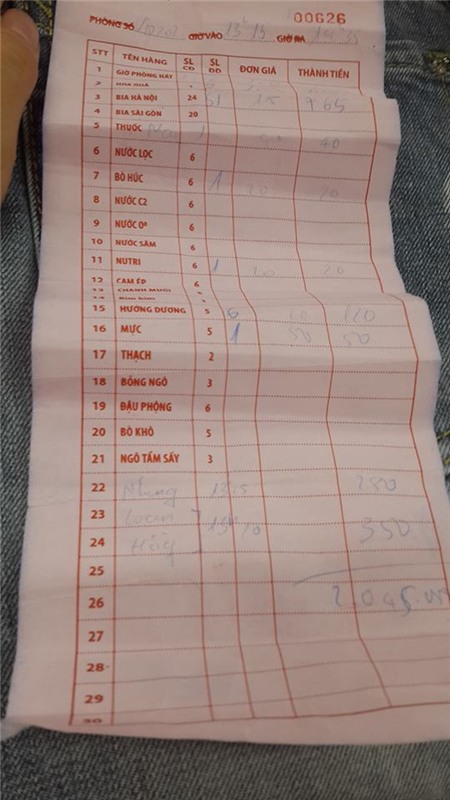 00626
PHÒNG SỐ GIỜ VÀO 13h15 GIỜ RA
STT TÊN HÀNG SL CĐ SL DD ĐƠN GIÁ THÀNH TIỀN
1 GIỜ PHÒNG HÁT
2
3 BIA HÀ NỘI 24 51 15 765
4 BIA SÀI GÒN 20
5 THUỐC 1 40
6 NƯỚC LỌC 6
7 BÒ HÚC 6 1 20 20
8 NƯỚC C2 6
9 NƯỚC O° 6
10 NƯỚC SÂM 6
11 NUTRI 6 1 20 20
12 CAM ÉP 6
13 CHANH MUỐI
14
15 HƯỚNG DƯƠNG 5 6 20 120
16 MỰC 5 1 50 50
17 THẠCH 2
18 BỎNG NGÔ 3
19 ĐẬU PHỘNG 6
20 BÒ KHÔ 5
21 NGÔ TẨM SẤY 3
22 Nhung 13h15 280
23 Loan
24 350
25
26 2.045
27
28
29